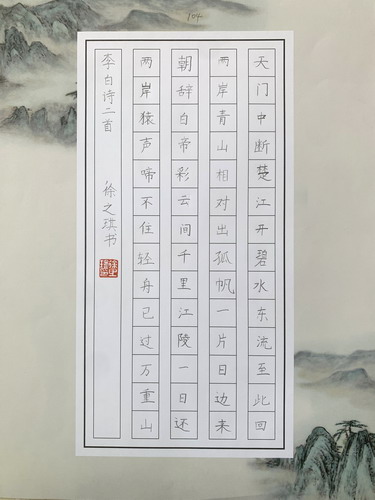 104
天门中断楚江开碧水东流至此回
两岸青山相对出孤帆一片日边来
朝辞白帝彩云间千里江陵一日还
两岸猿声啼不住轻舟已过万重山
李白诗二首 徐之琪书